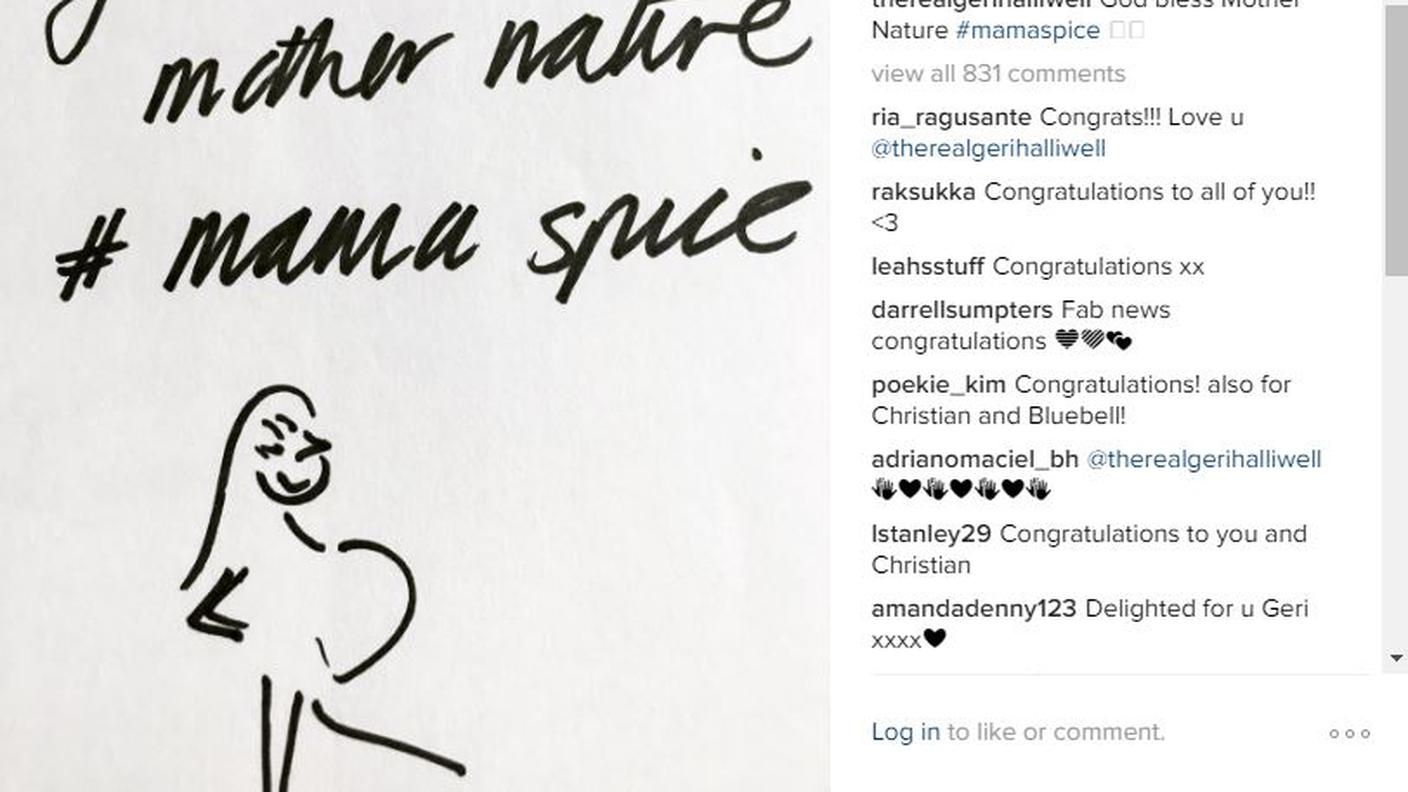 mother nature
# mama spice
therealgerihalliwell God bless Mother
Nature #mamaspice
view all 831 comments
ria_ragusante Congrats!!! Love u
@therealgerihalliwell
raksukka Congratulations to all of you!!
<3
leahsstuff Congratulations xx
darrellsumpters Fab news
congratulations
poekie_kim Congratulations! also for
Christian and Bluebell!
adrianomaciel_bh @therealgerihalliwell
lstanley29 Congratulations to you and
Christian
amandadenny123 Delighted for u Geri
xxxx
Log in to like or comment.